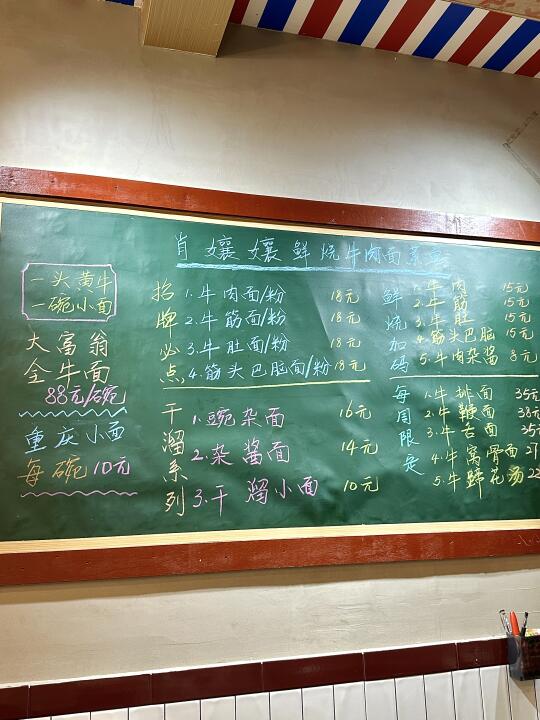 肖孃孃鲜烧牛肉面菜单
一头黄牛
一碗小面
大富翁
全牛面
88元/碗
重庆小面
每碗10元
招牌必点
1.牛肉面/粉 18元
2.牛筋面/粉 18元
3.牛肚面/粉 18元
4.筋头巴脑面/粉 18元
干溜系列
1.豌杂面 16元
2.杂酱面 14元
3.干溜小面 10元
鲜烧加码
1.牛肉 15元
2.牛筋 15元
3.牛肚 15元
4.筋头巴脑 15元
5.牛肉杂酱 8元
每周限定
1.牛排面 35元
2.牛鞭面 38元
3.牛舌面 35元
4.牛窝骨面
5.牛蹄花汤 22